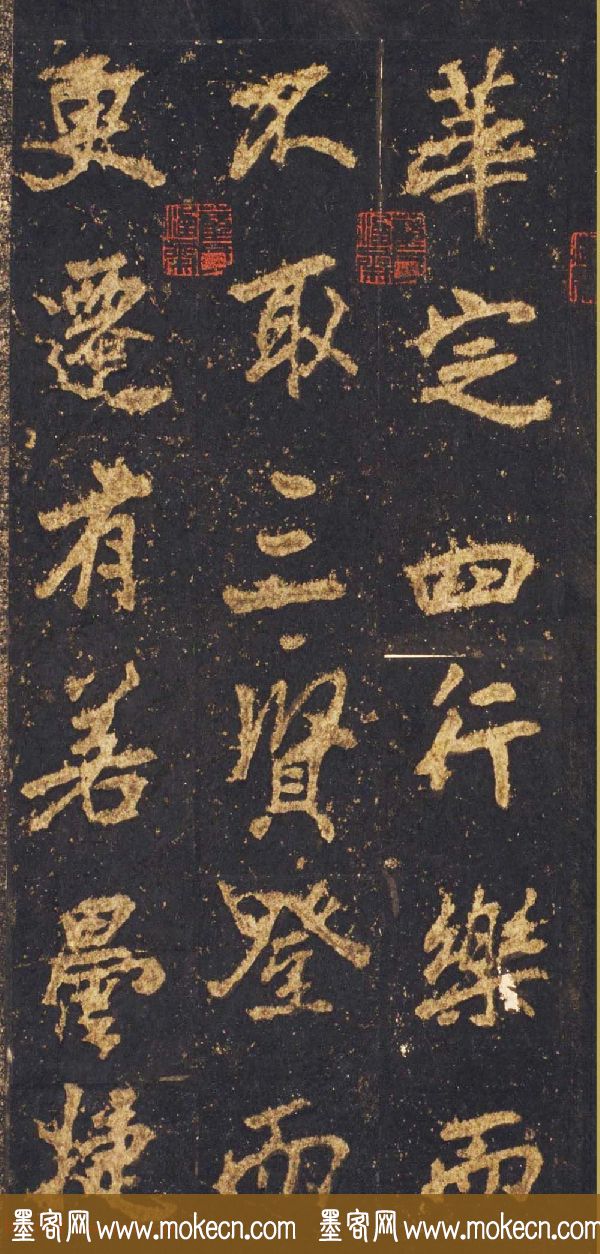 華定四行樂而
不取三賢登而
更遷有若曇捷
墨客网 www.mokecn.com 墨客网 www.mokecn.com